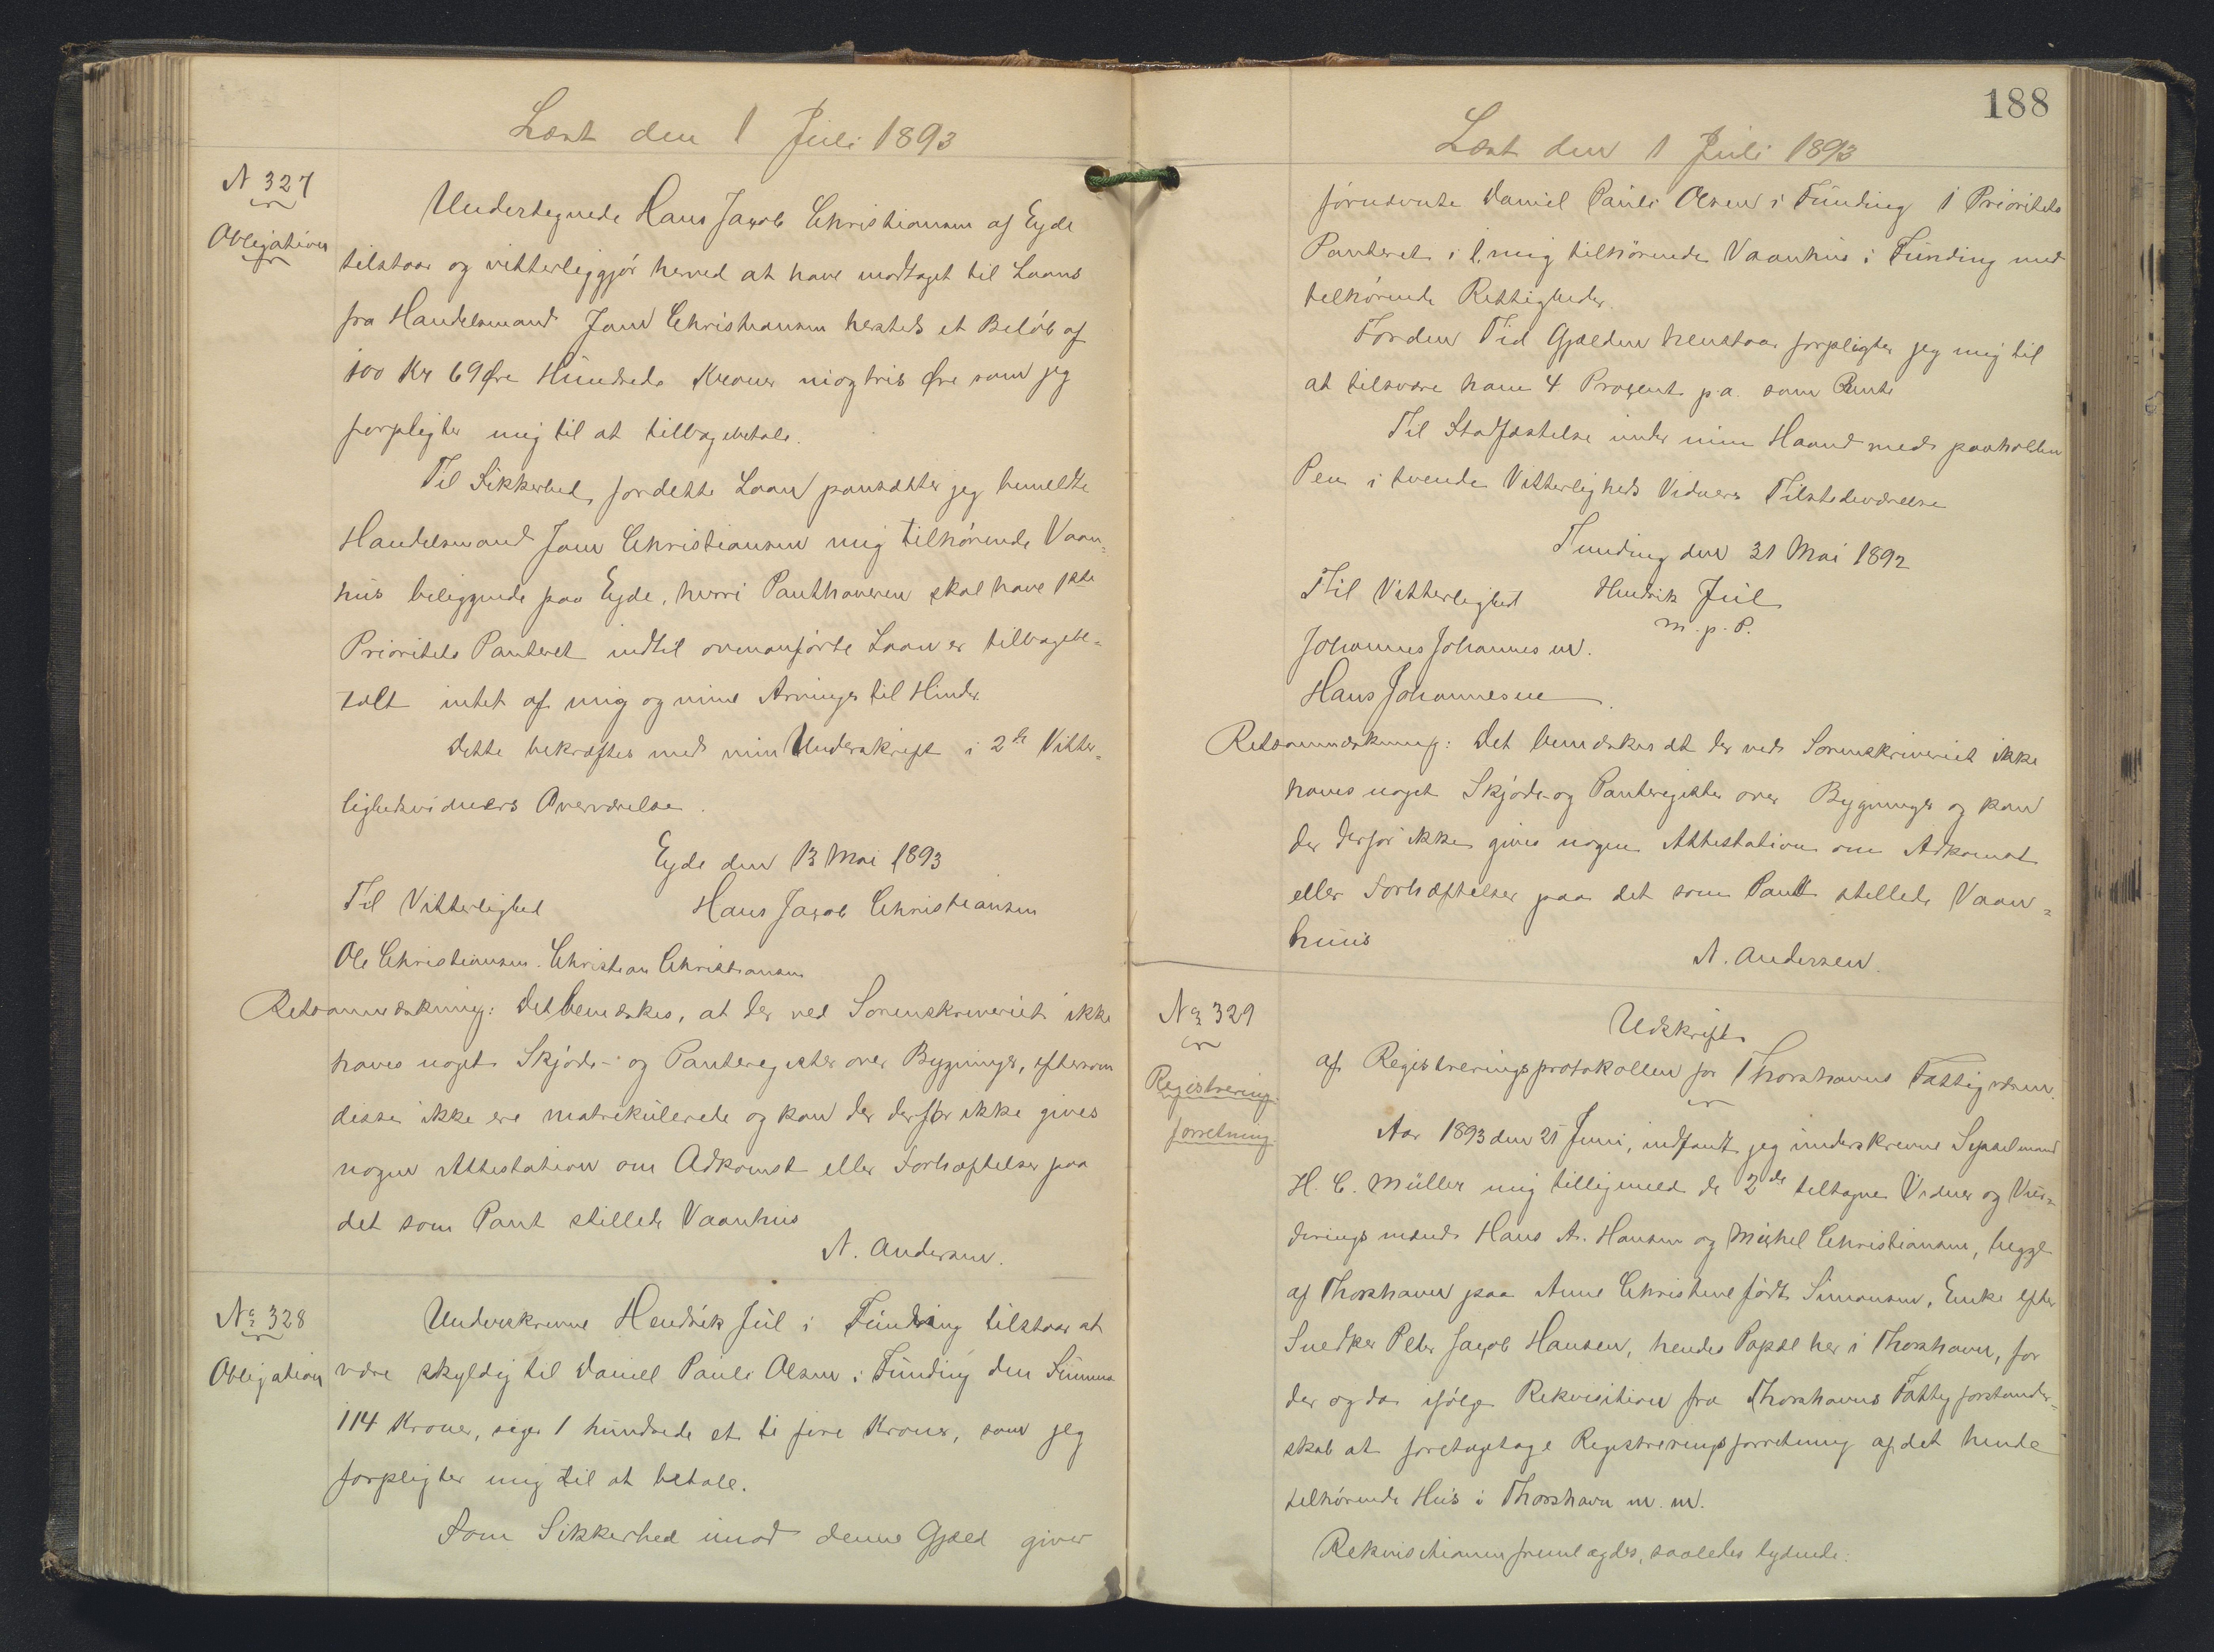 Læst den 1 Juli 1893
N 327
Obligation
Undertegnede Hans Jacob Christiansen af Eyde
tilstaar og vitterliggjør herved at have modtaget til Laans
fra Handelsmand Joen Christiansen hersteds et Beløb af
100 Kr 69 Øre Hundrede Kroner niogtris Øre som jeg
forpligter mig til at tilbagebetale.
Til Sikkerhed for dette Laan pansætter jeg bemeldte
Handelsmand Joen Christiansen mig tilhørende Vaan=
hus beliggende paa Eyde, hvori Panthaveren skal have 1ste
Prioritets Panteret indtil ovenanførte Laan er tilbagebe=
talt intet af mig og mine Arvinger til Hinder
Dette bekræftes med min Underskrift i 2de Vitter=
lighedsvidners Overværelse.
Eyde den 13 Mai 1893
Til Vitterlighed Hans Jacob Christiansen
Ole Christiansen. Christian Christiansen
Retsanmærkning: Det bemærkes, at der ved Sorenskriveriet ikke
haves noget Skjøde- og Panteregister over Bygninger, eftersom
disse ikke ere matrikulerede og kan der derfor ikke gives
nogen Attestation om Adkomst eller Forhæftelser paa
det som Pant stillede Vaanhus
N. Andersen.
No 328
Obligation
Underskrevne Hendrik Juul i Funding tilstaar at
være skyldig til Daniel Pauli Olsen i Funding den Summa
114 Kroner, siger 1 hundrede et ti fire Kroner, som jeg
forpligter mig til at betale.
Som Sikkerhed imod denne Gjæld giver
188
Læst den 1 Juli 1893
førnævnte Daniel Pauli Olsen i Funding 1 Prioritets
Panteret i 1, mig tilhørende Vaanhus i Funding med
tilhørende Rettigheder.
For den Tid Gjælden henstaar forpligter jeg mig til
at tilsvare ham 4 Procent p.a. som Rente
Til Stadfæstelse under min Haand med paaholden
Pen i tvende Vitterligheds Vidners Tilstedeværelse
Funding den 31 Mai 1892
Til Vitterlighed Hendrik Juul
m. p. P.
Johannes Johannesen.
Hans Johannesen.
Retsanmærkning: Det bemærkes at der ved Sorenskriveriet ikke
haves noget Skjøde- og Panteregister over Bygninger og kan
der derfor ikke gives nogen Attestation om Adkomst
eller Forhæftelser paa det som Pant stillede Vaan=
huus
N. Andersen.
No 329
Registrering
forretning.
Udskrift
af Registreringsprotokollen for Thorshavns Fattigvæsen.
Aar 1893 den 21 Juni, indfandt jeg underskrevne Sysselmand
H. C. Müller mig tilligemed de 2de tiltagne Vidner og Vur=
deringsmænd Hans A. Hansen og Michel Christiansen, begge
af Thorshavn paa Anne Christine født Simonsen, Enke efter
Snedker Peter Jacob Hansen, hendes Bopæl her i Thorshavn, for
der og da ifølge Rekvisition fra Thorshavns Fattigforstander=
skab at foretagtage Registreringsforretning af det hende
tilhørende Hus i Thorshavn m. m.
Rekvisitionen fremlægdes, saaledes lydende: